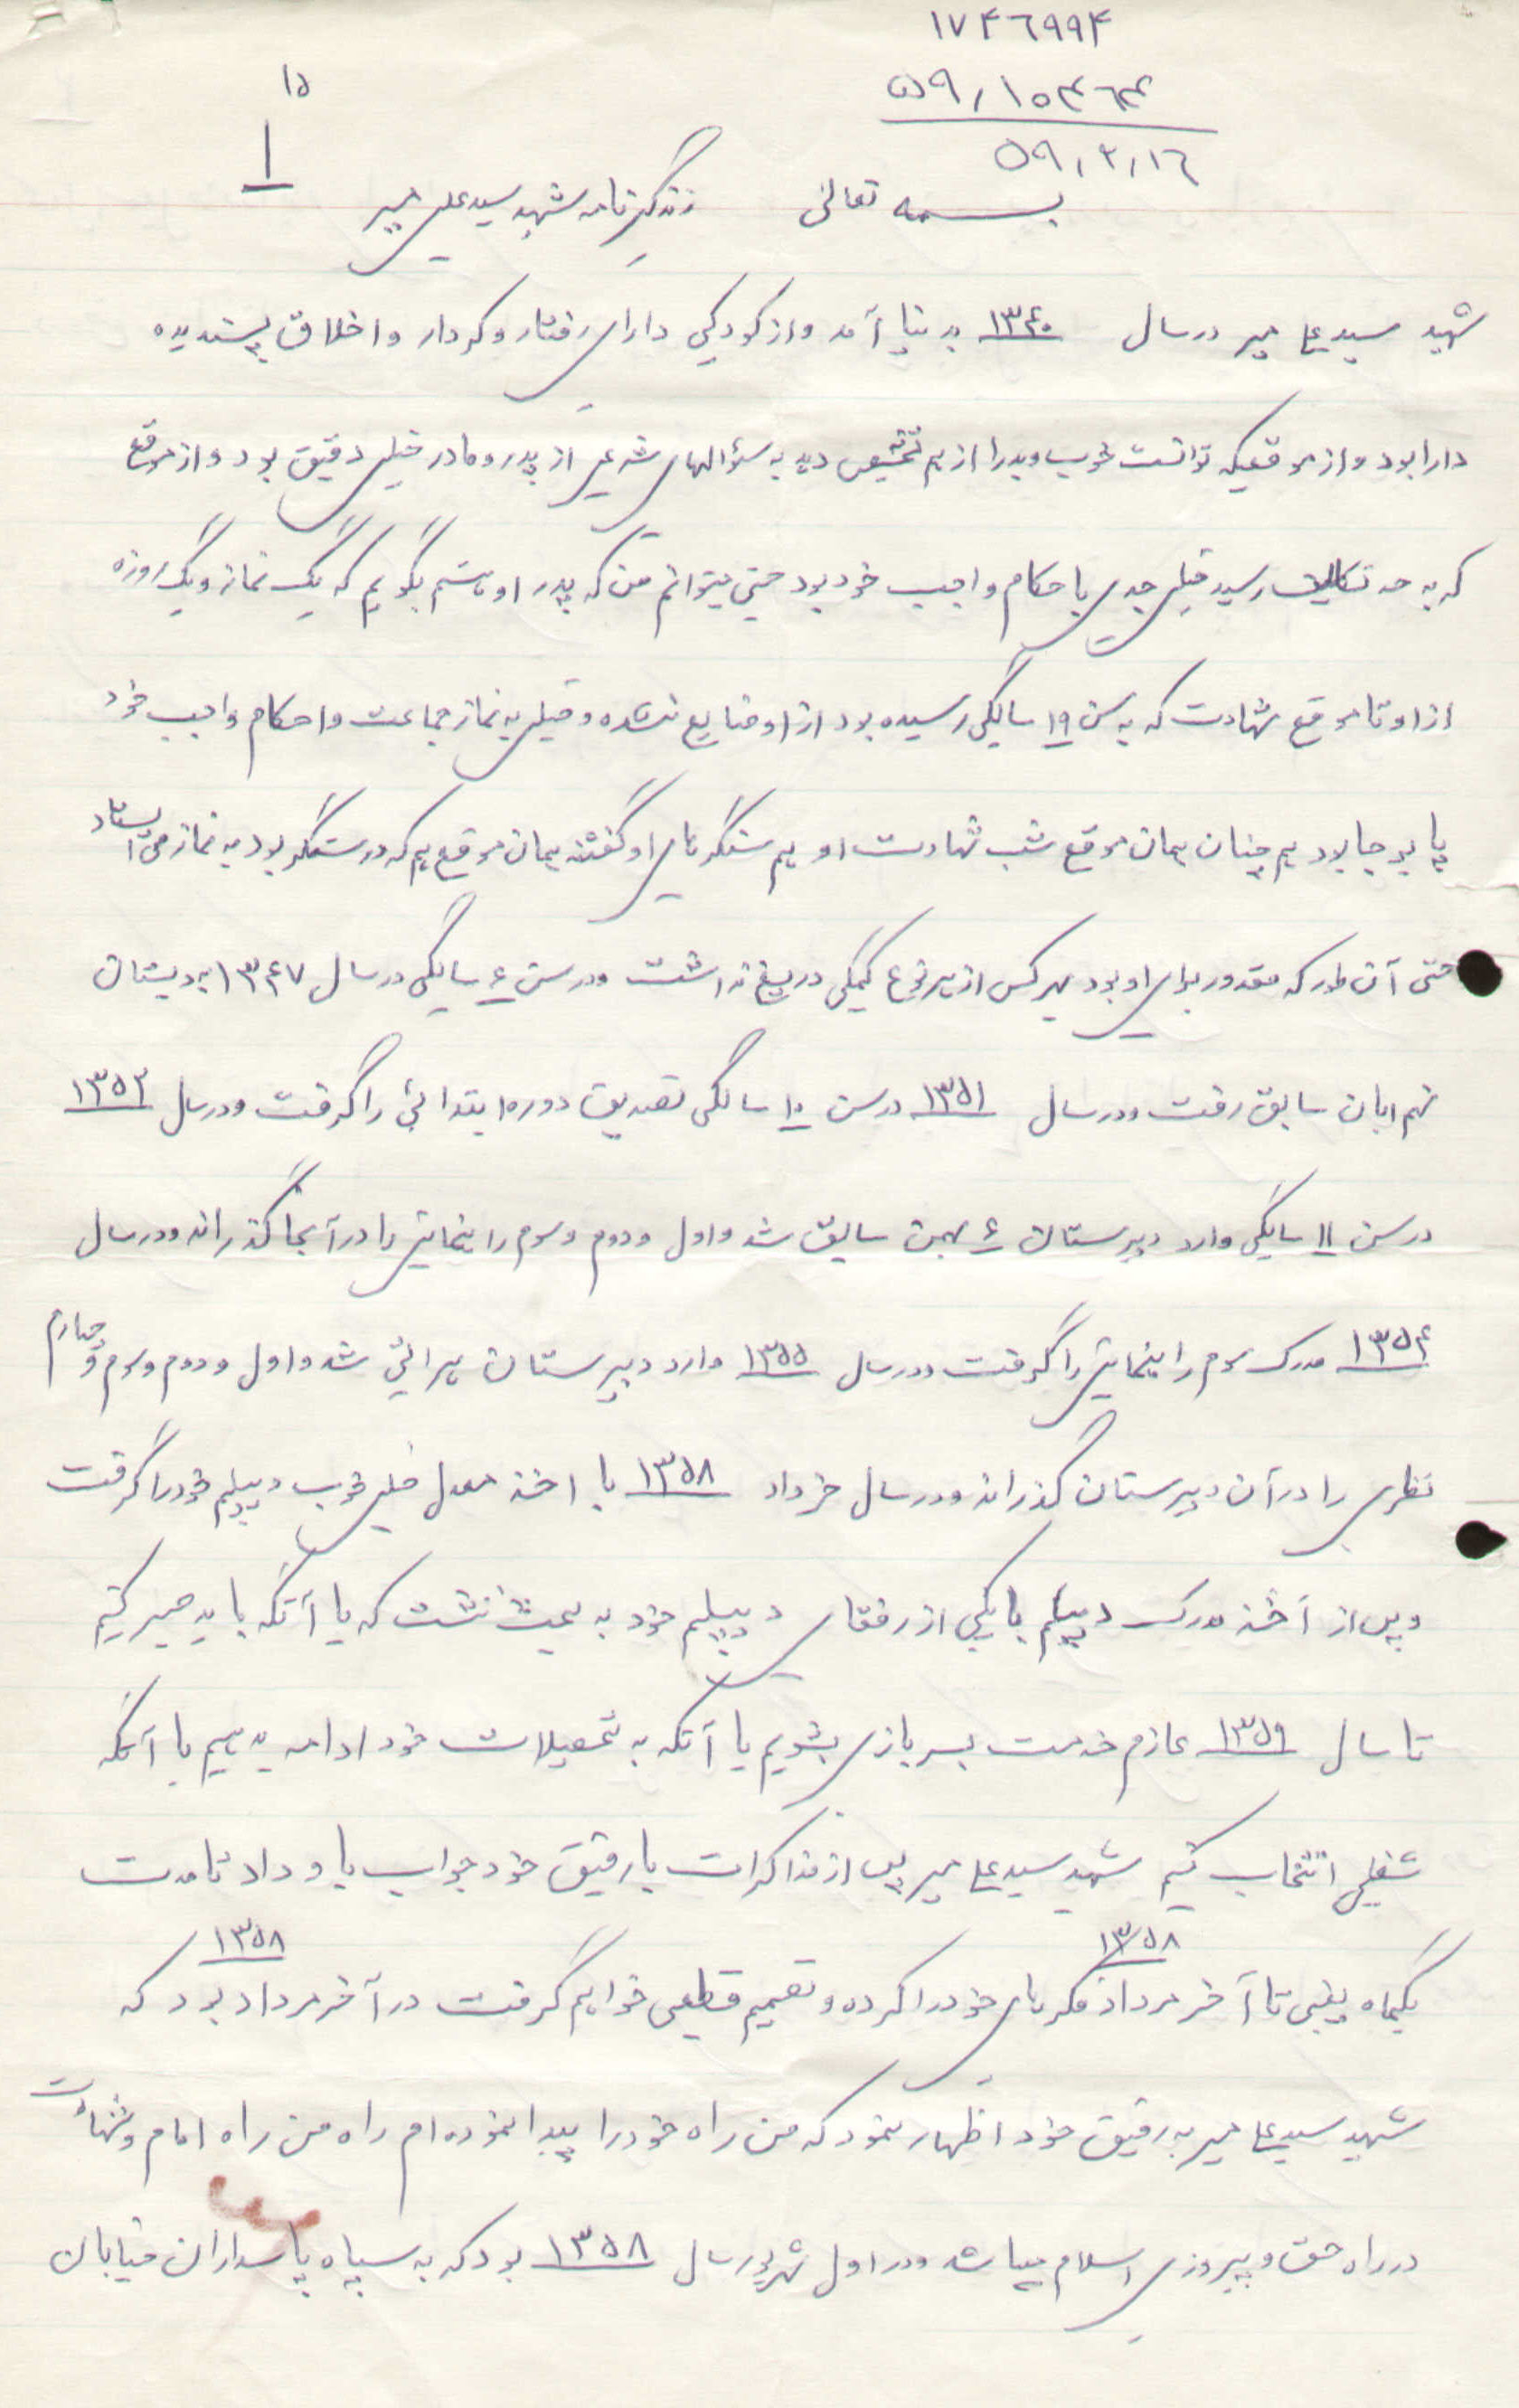 ۱۷۴۶۹۹۴
۵۹/۱۰۳۴۶۴
۵۹/۳/۱۶
۱۵
۱
بسمه تعالی زندگینامه شهید سیدعلی میر
شهید سید علی میر در سال ۱۳۴۰ بدنیا آمد و از کودکی دارای رفتار و کردار و اخلاق پسندیده
دارا بود و از موقعیکه توانست خوب و بد را از هم تشخیص دهد به سؤالهای شرعی از پدر و مادر خیلی دقیق بود و از موقع
که به حد تکالیف رسید خیلی جدی باحکام واجب خود بود حتی میتوانم من که پدر او هستم بگویم که یک نماز و یک روزه
از او تا موقع شهادت که به سن ۱۹ سالگی رسیده بود از او ضایع نشده و خیلی به نماز جماعت و احکام واجب خود
پا بر جا بود هم چنان همان موقع شب شهادت او هم سنگرهای او گفتند همان موقع هم که در سنگر بود به نماز می ایستاد
حتی آن طور که مقدور برای او بود بهر کس از هر نوع کمکی دریغ نداشت و در سن ۶ سالگی در سال ۱۳۴۷ به دبستان
نهم ابان سابق رفت و در سال ۱۳۵۱ در سن ۱۰ سالگی تصدیق دوره ابتدائی را گرفت و در سال ۱۳۵۲
در سن ۱۱ سالگی وارد دبیرستان ۶ بهمن سابق شد و اول و دوم و سوم راهنمایی را در آنجا گذراند و در سال
۱۳۵۴ مدرک سوم راهنمایی را گرفت و در سال ۱۳۵۵ وارد دبیرستان هرائی شد و اول و دوم و سوم و چهارم
نظری را در آن دبیرستان گذراند و در سال خرداد ۱۳۵۸ با اخذ معدل خیلی خوب دیپلم خود را گرفت
و پس از آخذ مدرک دیپلم با یکی از رفقای دیپلم خود به بحث نشت که یا آنکه باید صبر کنیم
تا سال ۱۳۵۹ عازم خدمت بسربازی بشویم یا آنکه به تحصیلات خود ادامه بدهیم یا آنکه
شغلی انتخاب کنیم شهید سید علی میر پس از مذاکرات با رفیق خود جواب باو داد تا مدت
یکماه یعنی تا آخر مرداد ۱۳۵۸ فکرهای خود را کرده و تصمیم قطعی خواهم گرفت در آخر مرداد ۱۳۵۸ بود که
شهید سید علی میر به رفیق خود اظهار نمود که من راه خود را پیدا نموده ام راه من راه امام و شهادت
در راه حق و پیروزی اسلام میباشد و در اول شهریور سال ۱۳۵۸ بود که به سپاه پاسداران خیابان